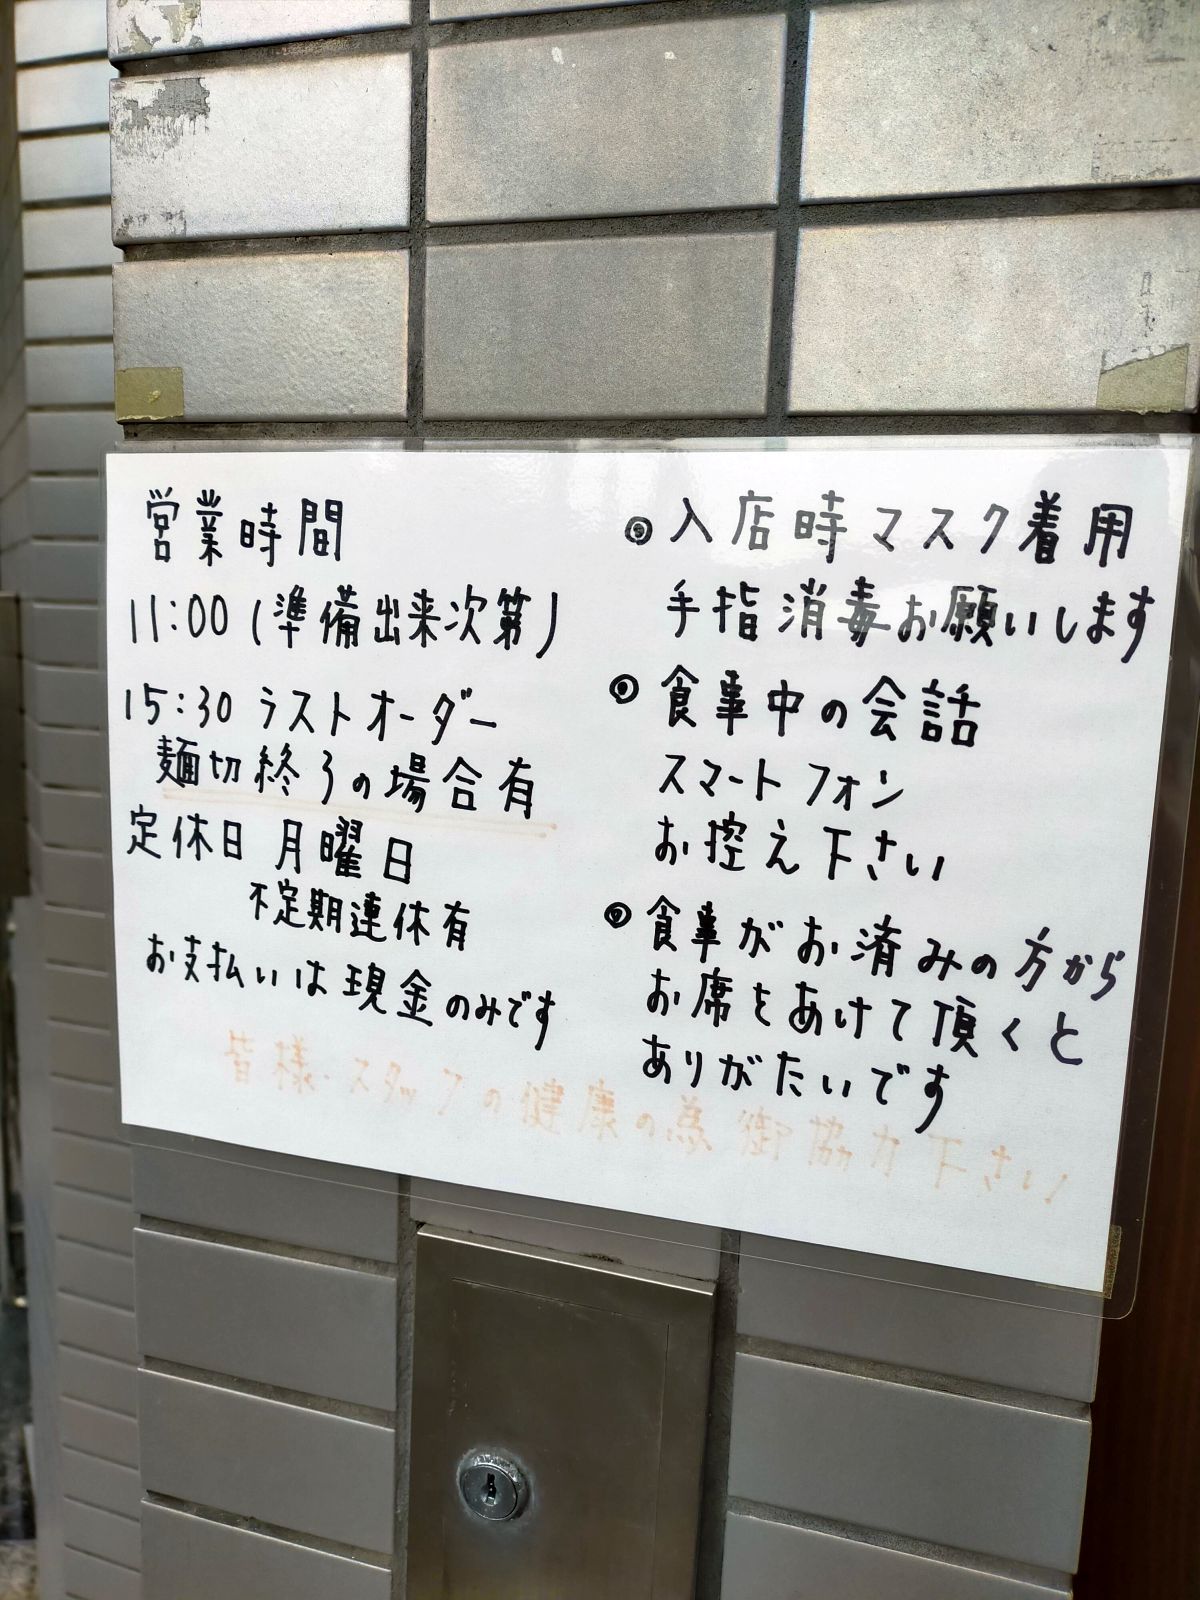 営業時間
11:00(準備出来次第)
15:30 ラストオーダー
麺切終了の場合有
定休日 月曜日
不定期連休有
お支払いは現金のみです
◎入店時マスク着用
手指消毒お願いします
◎食事中の会話
スマートフォン
お控え下さい
◎食事がお済みの方から
お席をあけて頂くと
ありがたいです
皆様・スタッフの健康の為御協力下さい